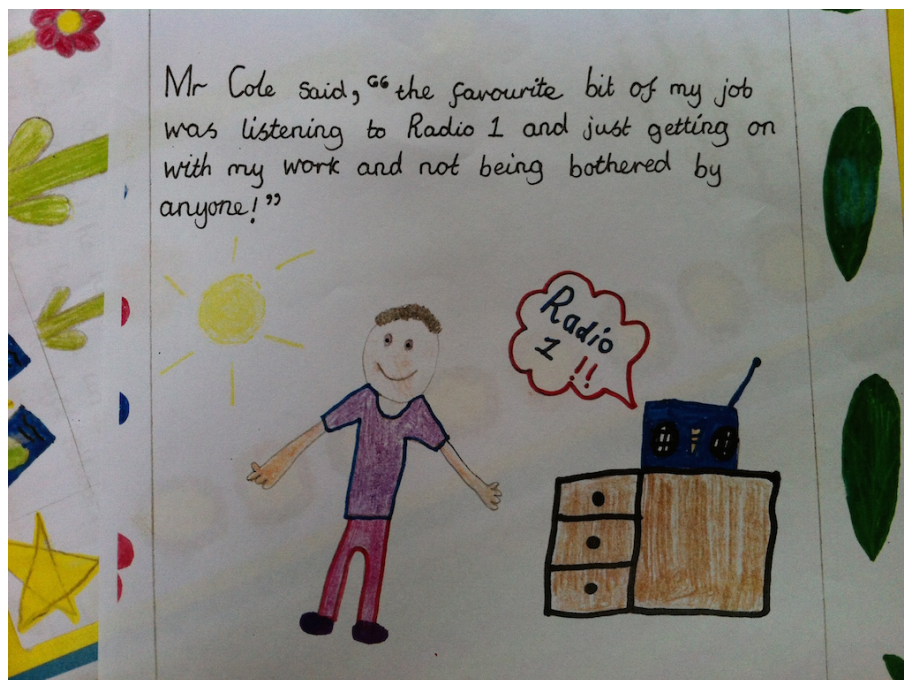 Mr Cole said, “the favourite bit of my job
was listening to Radio 1 and just getting on
with my work and not being bothered by
anyone!”
Radio
1 !!